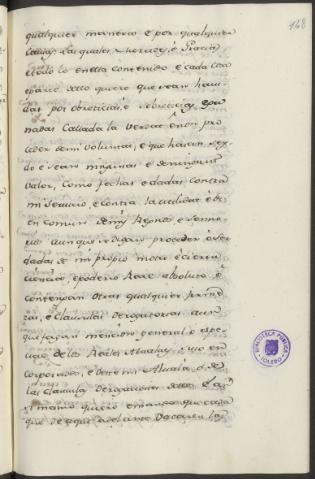 148
qualquier manera e por qualquier
causa, las quales Mercedes, e Gracias
e todo lo en ella contenido e cada cosa
e parte dello quiero que sean havi
das por obreticias, e subreticias e ga
nadas callada la verdad e non pro
ceder de mi voluntad, e que hayan seydo
e sean ningunas e de ningun
valor, como fechas e dadas contra
mi servicio, e contra la utilidad e bi
en comun de mis Reynos e Senno
rios aunque se digan proceder e ser
dadas de mi propio motu e cierta
ciencia, e poderio Real absoluto, e
contengan otras qualquier firme
zas, e clausulas derogatorias aun
que fagan mencion general o espe
cial de los Reales Alvalas, e uso en
corporados, e deste mi Alvalá, e de
las clausulas derogatorias dellos. E asi
mismo quiero e mando que cada
que de aqui adelante vacaren las
BIBLIOTECA PUBLICA
TOLEDO